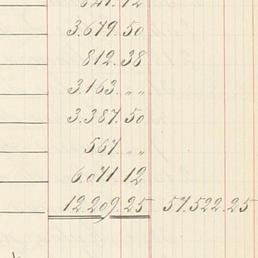 641.12
3.679.50
812.38
3.163. „ „
3.387.50
567. „ „
6.071 12
12.209.25 57.522.25